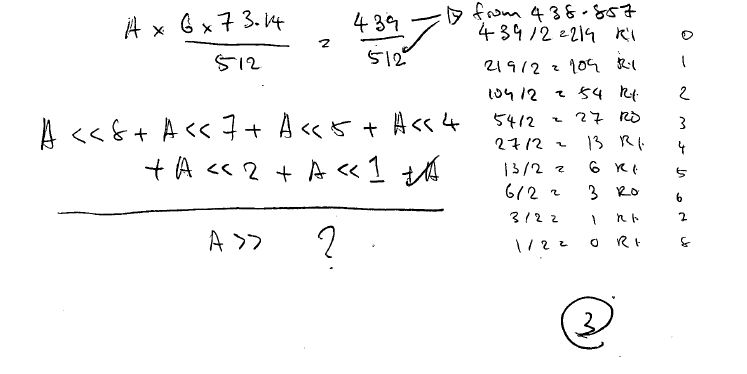 A × 6 × 73.14 / 512 = 439 / 512 → from 438.857
439/2 = 219 R1 0
219/2 = 109 R1 1
109/2 = 54 R1 2
54/2 = 27 R0 3
27/2 = 13 R1 4
13/2 = 6 R1 5
6/2 = 3 R0 6
3/2 = 1 R1 7
1/2 = 0 R1 8
A << 8 + A << 7 + A << 5 + A << 4
+ A << 2 + A << 1 + A
A >> ?
3